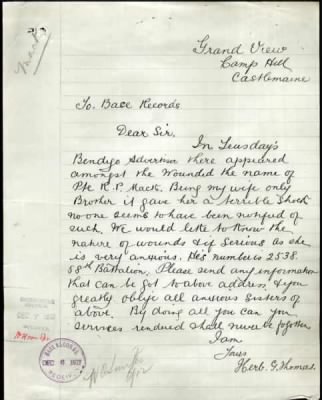 Grand View
Camp Hill
Castlemaine
To. Base Records
Dear Sir.
In Tuesday's
Bendigo Advertiser there appeared
amongst the Wounded the name of
Pte R. P. Mack. Being my wife only
Brother it gave her a terrible Shock
no one seems to have been notified of
such. We would like to Know the
nature of wounds & if Serious as she
is very anxious. His number is 2538.
58th Battalion. Please send any information
that can be got to above address & you
greatly oblige all anxious Sisters of
above. By doing all you can your
services rendered shall never be forgotten
I am
Yours
Herb. G. Thomas.
BASE RECORDS
DEC 8 1917